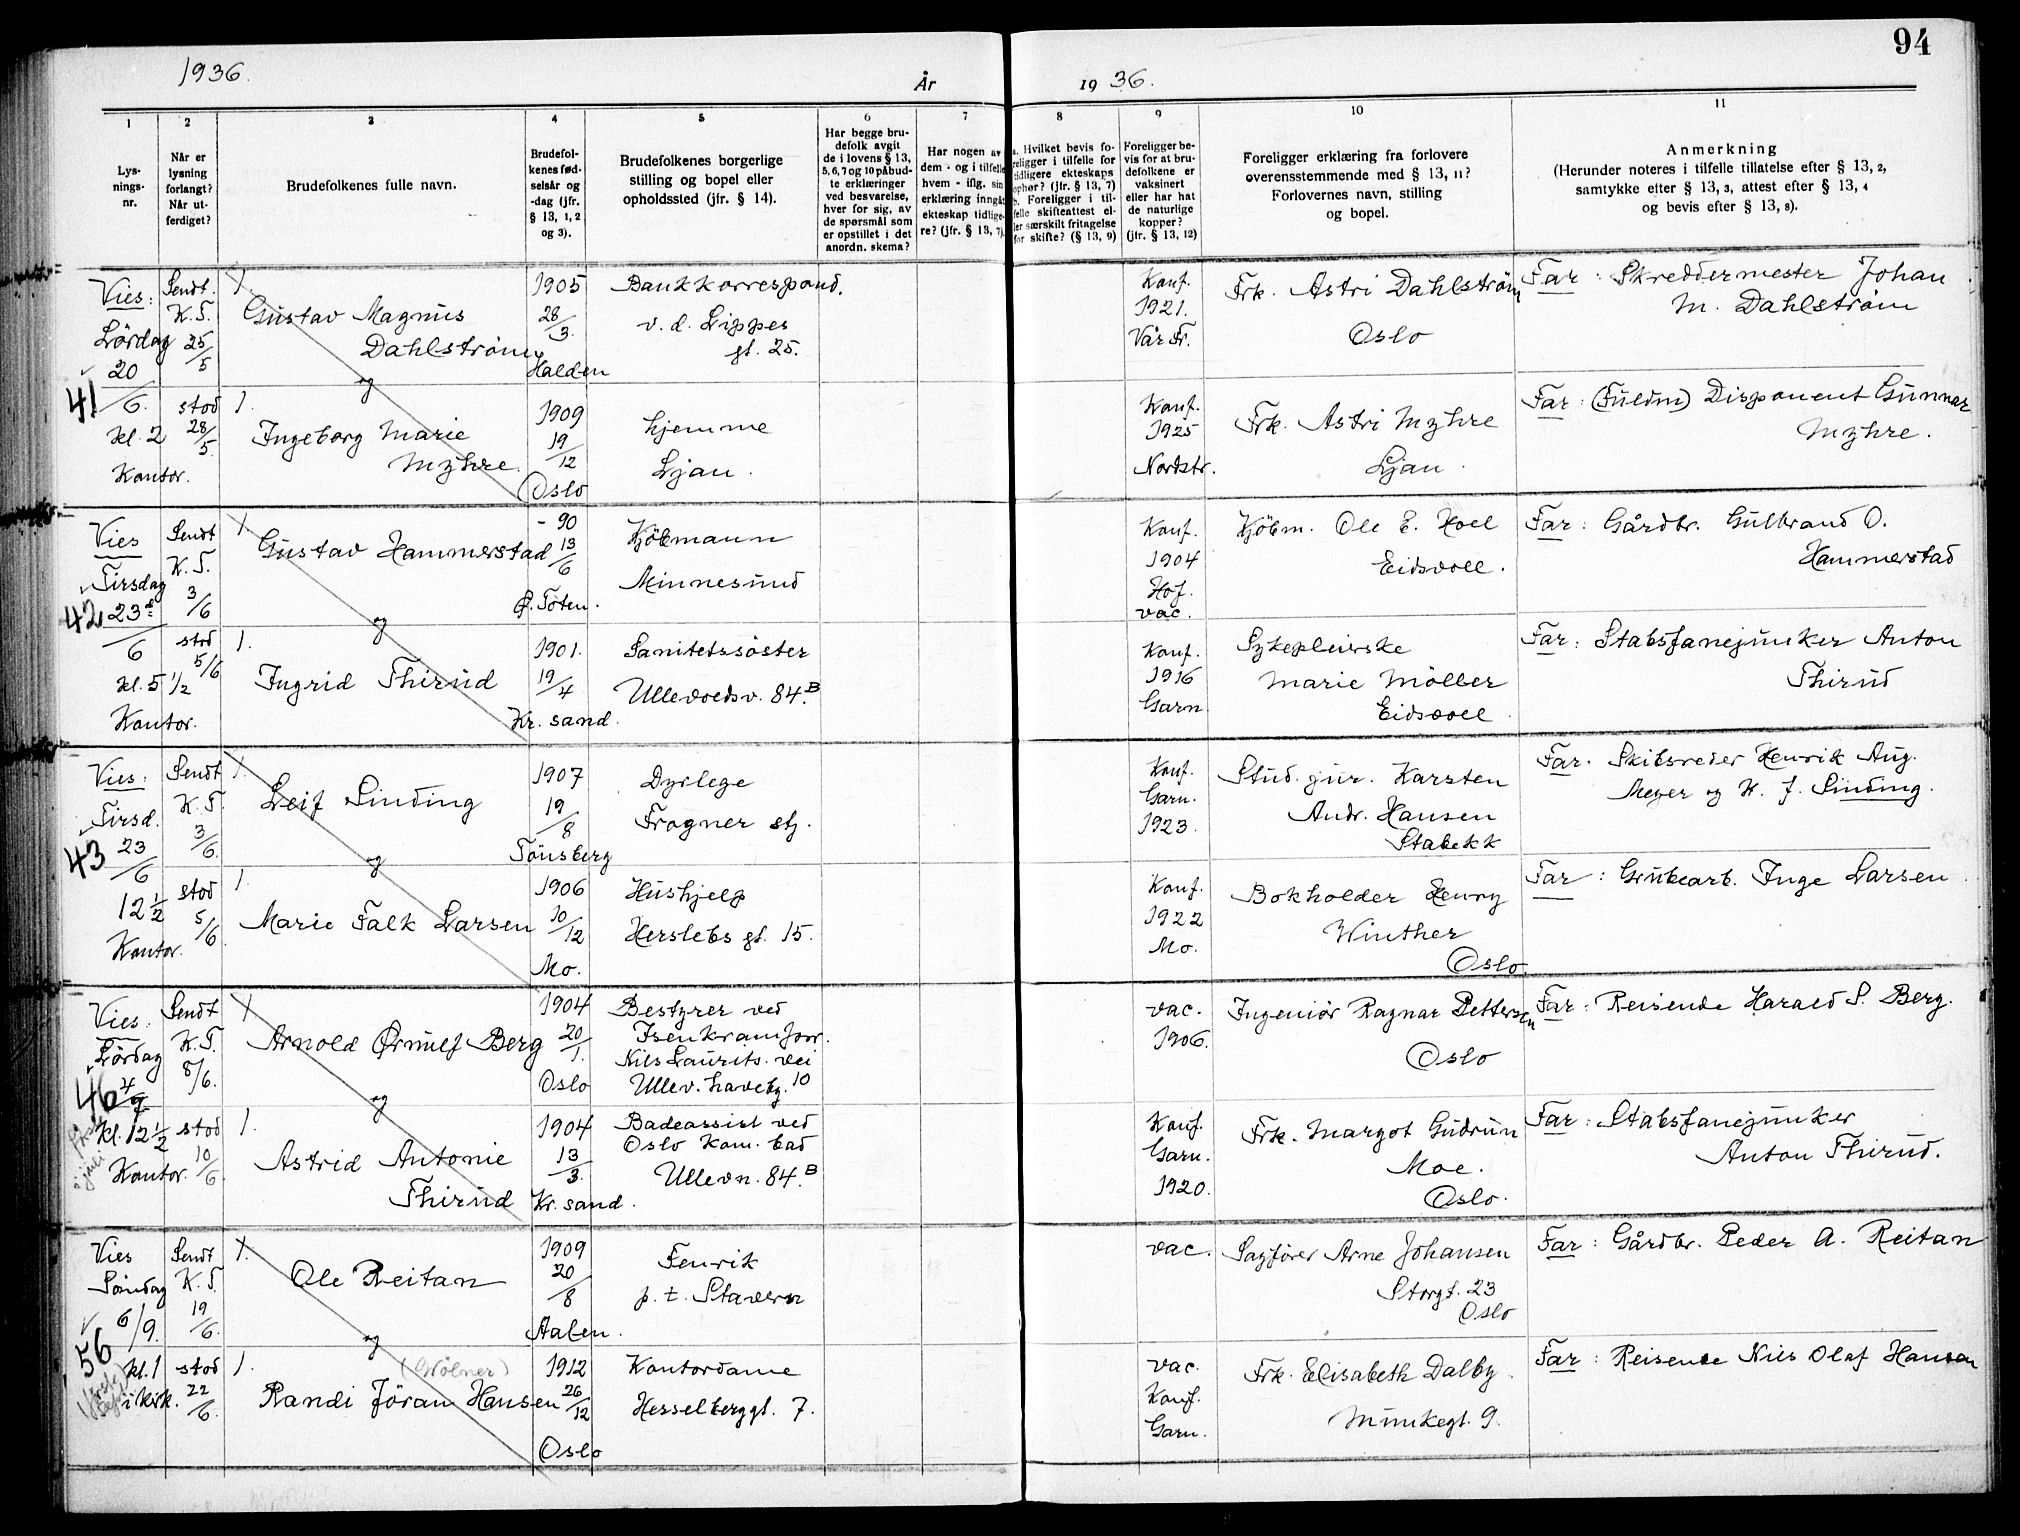 94
1936.
År
1936.
1
2
3
4
5
6
7
8
9
10
11
Lys-
nings-
nr.
Når er
lysning
forlangt?
Når ut-
ferdiget?
Brudefolkenes fulle navn.
Brudefol-
kenes fød-
selsår og
-dag (jfr.
§ 13, 1, 2
og 3).
Brudefolkenes borgerlige
stilling og bopel eller
opholdssted (jfr. § 14).
Har begge bru-
defolk avgit
de i lovens § 13,
5, 6, 7 og 10 påbud-
te erklæringer
ved besvarelse,
hver for sig, av
de spørsmål som
er opstillet i det
anordn. skema?
Har nogen av
dem - og i tilfelle
hvem - iflg. sin
erklæring inngåt
ekteskap tidlige-
re? (jfr. § 13, 7).
a. Hvilket bevis fo-
religger i tilfelle for
tidligere ekteskaps
ophør? (jfr. § 13, 7)
b. Foreligger i til-
felle skifteattest el-
ler særskilt fritagelse
for skifte? (§ 13, 9)
Foreligger be-
vis for at bru-
defolkene er
vaksinert
eller har hat
de naturlige
kopper?
(jfr. § 13, 12)
Foreligger erklæring fra forlovere
overensstemmende med § 13, 11?
Forlovernes navn, stilling
og bopel.
Anmerkning
(Herunder noteres i tilfelle tillatelse efter § 13, 2,
samtykke efter § 13, 3, attest efter § 13, 4
og bevis efter § 13, 8).
41
Vies:
Lördag
20
/6.
kl. 2
Kontor.
Sendt.
K. T.
25/5
stod
28/5.
1.
Gustav Magnus
Dahlstrøm
og
1905
28/3.
Halden
Bankkorrespond.
v. d. Lippes
gt. 25.
Konf.
1921.
Vår Fr.
Frk. Astri Dahlstrøm
Oslo
Far: Skreddermester Johan
M. Dahlstrøm
1.
Ingeborg Marie
Myhre.
1909
19/12
Oslo
hjemme
Ljan.
Konf.
1925
Nordstr.
Frk. Astri Myhre
Ljan.
Far: (Fuldm) Disponent Gunnar
Myhre.
42
Vies
Tirsdag
23d
/6
kl. 5 1/2
Kontor.
Sendt
K. T.
3/6
stod
5/6
1.
Gustav Hammerstad
og
- 90
13/6
Ø. Toten.
Kjöbmann
Minnesund
Konf.
1904
Hof.
vac.
Kjöbm. Ole E. Hoel
Eidsvoll.
Far: Gårdbr. Gulbrand O.
Hammerstad
1.
Ingrid Thirud
1901.
19/4
Kr. sand.
Sanitetssöster
Ullevoldsv. 84.B
Konf.
1916
Garn
Sykepleierske
Marie Möller
Eidsvoll.
Far: Stabsfanejunker Anton
Thirud
43
Vies:
Tirsd.
23
/6
12 1/2
Kontor.
Sendt
K. T.
3/6.
stod
5/6.
1.
Leif Sinding
og
1907
19/8
Tönsberg
Dyrlege
Frogner stj.
Konf.
Garn.
1923.
Stud. jur. Karsten
Andr. Hansen
Stabekk
Far. Skibsreder Henrik Aug.
Meyer og H. J. Sinding.
1.
Marie Falk Larsen
1906
10/12
Mo.
Hushjelp
Herslebs gt. 15.
Konf.
1922
Mo.
Bokholder Henry
Winther
Oslo.
Far: Grubearb. Inge Larsen.
46
Vies.
Lördag
4/7
kl. 12 1/2
Kontor.
Sendt
K. T.
8/6.
stod
10/6.
1
Arnold Ørnulf Berg
og
1904
20/1.
Oslo
Bestyrer ved
Isenkramforr.
Nils Laurits. vei
Ullev. haveby. 10
vac.
1906.
Ingeniör Ragnar Pettersen
Oslo
Far: Reisende Harald S. Berg.
1.
Astrid Antonie
Thirud
1904
13/3.
Kr. sand.
Badeassist ved
Oslo kom. bad
Ullevn. 84.B
Konf.
Garn.
1920.
Frk. Margot Gudrun
Moe.
Oslo.
Far: Stabsfanejunker
Anton Thirud.
56
Vies
Søndag
6/9.
kl. 1
i kirk.
Sendt
K. T.
19/6.
stod
22/6.
1.
Ole Reitan
og
1909
20/8
Aalen.
Fenrik
p. t. Stavern
vac.
Sagfører Arne Johansen
Storgt. 23
Oslo
Far: Gårdbr. Peder A. Reitan
1.
(Grölner)
Randi Jöran Hansen
1912
26/12
Oslo
Kontordame
Hesselberggt. 7.
vac.
Konf.
Garn.
Frk. Elisabeth Dalby.
Munkegt. 9.
Far: Reisende Nils Olaf Hansen